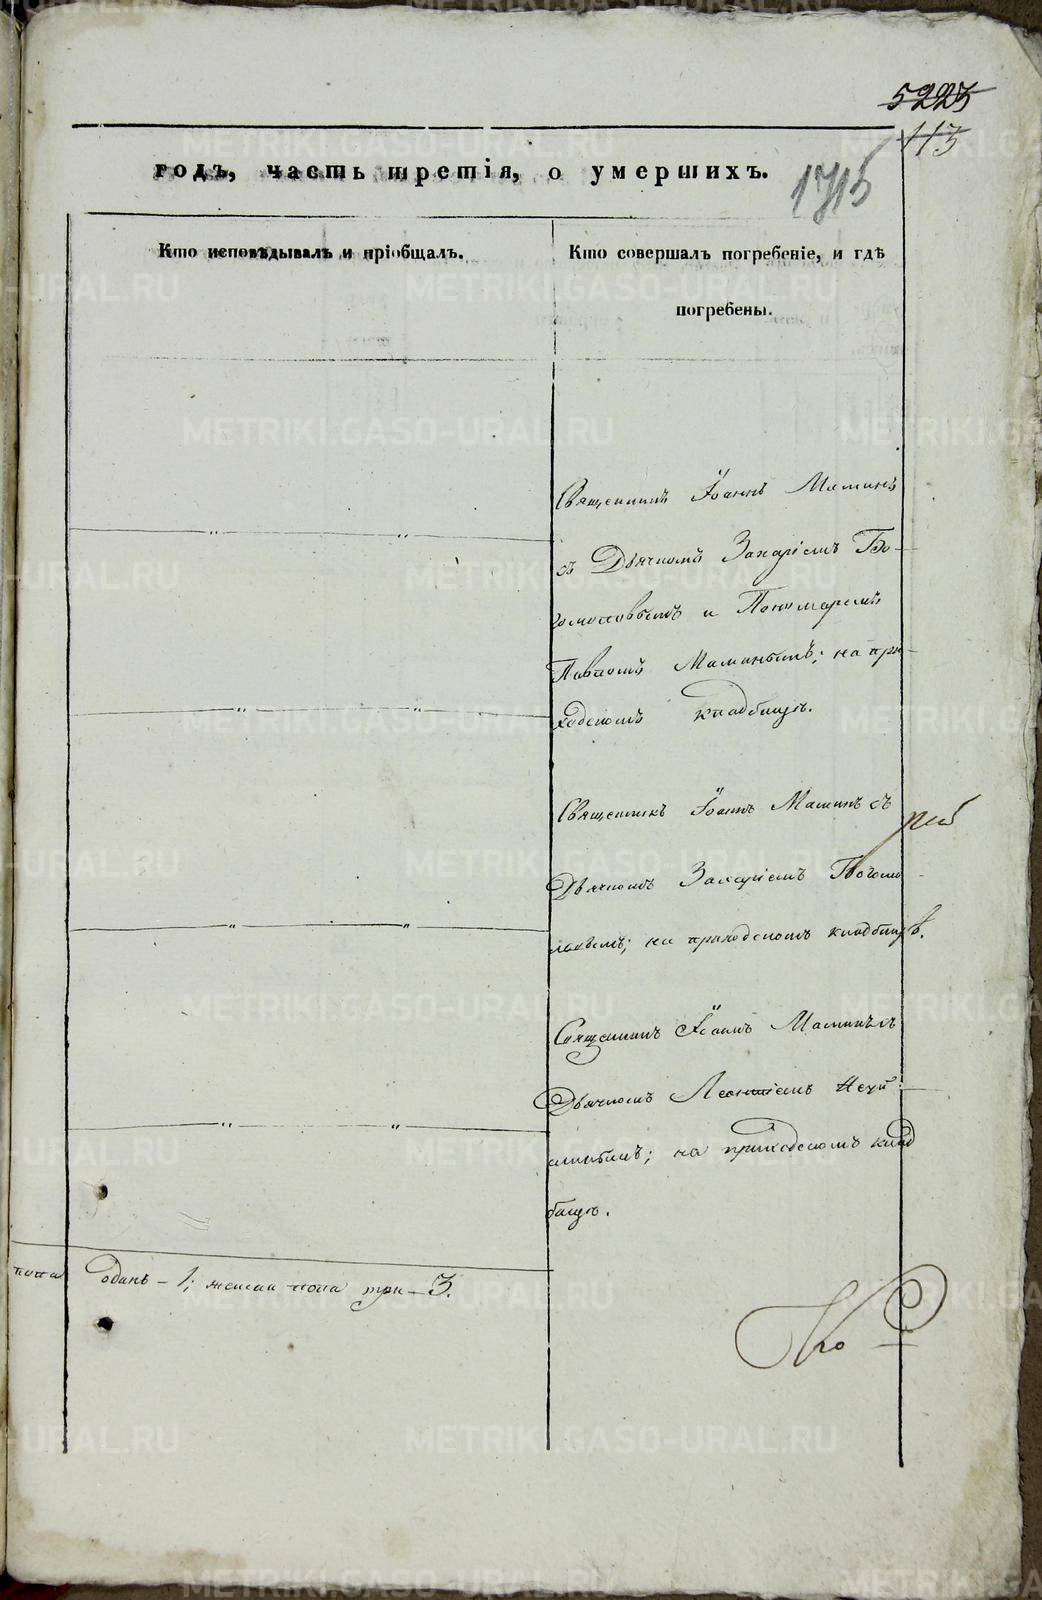 5223
113
годъ, часть третія, о умершихъ.
1715
Кто исповѣдывалъ и пріобщалъ.
Кто совершалъ погребеніе, и гдѣ
погребены.
Священникъ Іоаннъ Маминъ
съ Дьячкомъ Захаріемъ Бо-
гомоловымъ и Пономаремъ
Павломъ Маминымъ; на при-
ходскомъ кладбищѣ.
Священникъ Іоаннъ Маминъ съ
Дьячкомъ Захаріемъ Богомо
ловымъ; на приходскомъ кладбищѣ.
Священникъ Іоаннъ Маминъ съ
Дьячкомъ Леонтіемъ
на приходскомъ клад
бищѣ.
пола
одинъ – 1; женска пола три – 3.
METRIKI.GASO-URAL.RU